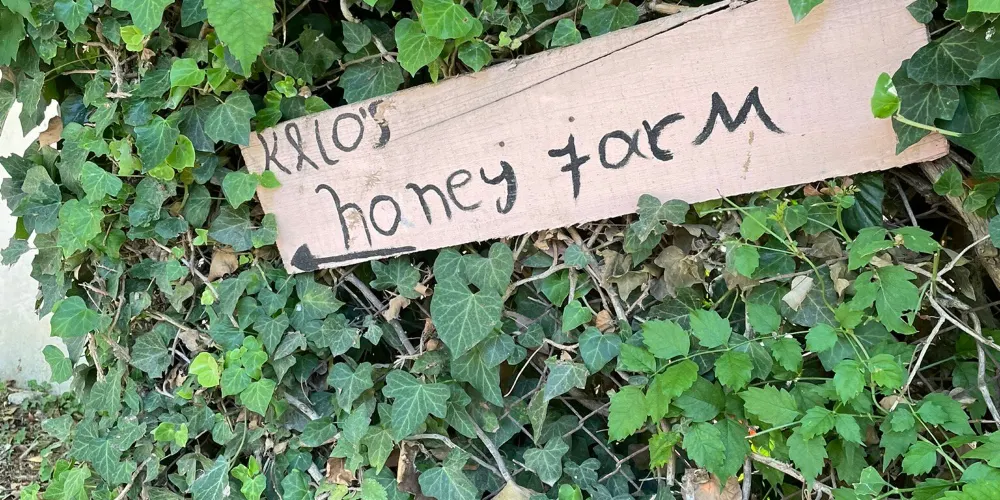 Klio's
honey farm